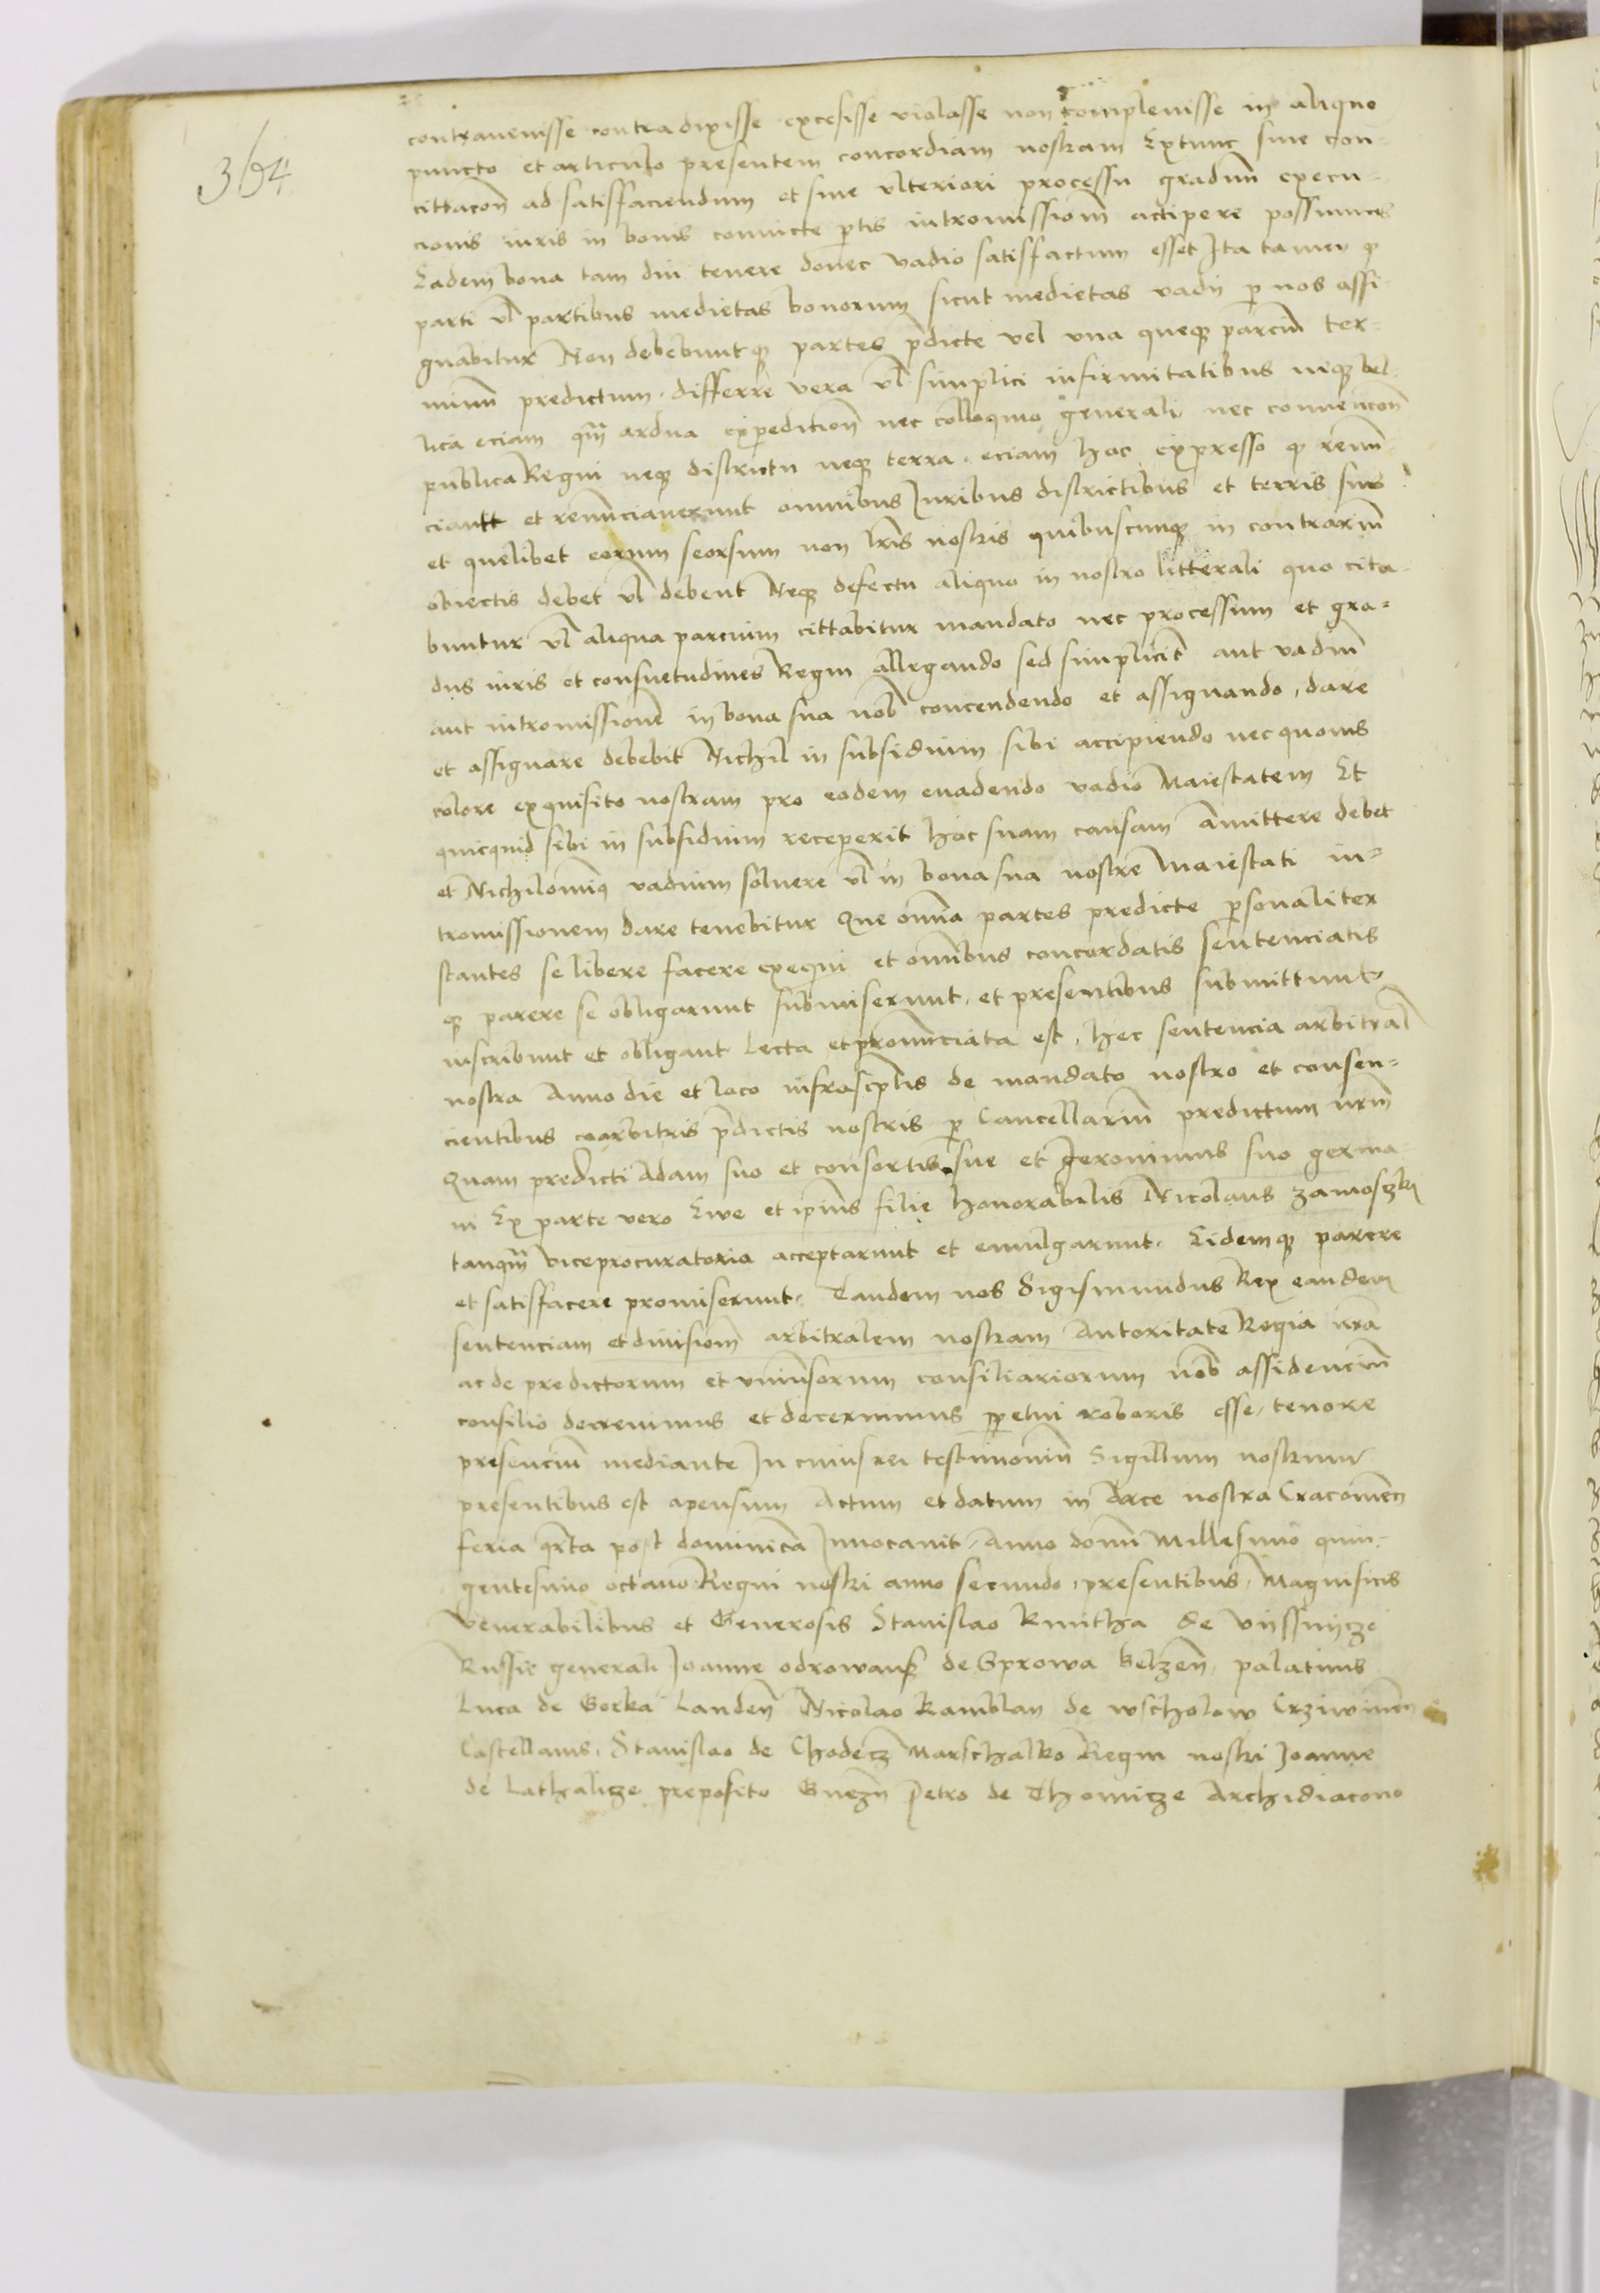 364
contravenisse contradixisse excesisse violasse non complevisse in aliquo
puncto et articulo presentem concordiam nostram Extunc sine con-
cittacoñ ad satisfaciendum et sine ulteriori processu graduum execu-
cionis iuris in bonis convicte ptis intromissioñ accipere possumus
Eadem bona tam diu tenere donec vadio satisfactum esset Ita tamen q
parti vl partibus medietas bonorum sicut medietas vadii p nos assi
gnabitur Non debebuntq partes pdicte vel una queq parciũ ter-
minũ predictum differre vera vl simplici infirmitatibus neq bel-
lica eciam qm ardua expedicioñ nec colloquio generali nec convencoñ
publica Regni neq districtu neq terra eciam hoc expresso q renũ
ciantt et renũciaverunt omnibus Iuribus districtibus et terris suis
et quelibet eorum seorsum non lris nostris quibuscunq in contrariũ
obiectis debet vl debent Neq defectu aliquo in nostro litterali quo cita-
buntur vl aliqua parcium cittabitur mandato nec processum et gra-
dus iuris et consuetudines Regni allegando sed simplicit aut vadiũ
aut intromissionẽ in bona sua nob concendendo et assignando dare
et assignare debebit Nichil in subsidium sibi accipiendo nec quovis
colore exquisito nostram pro eodem evadendo vadio Maiestatem Et
quicquid sibi in subsidium receperit hoc suam causam amittere debet
et Nichilominq vadium solvere vl in bona sua nostre Maiestati in-
tromissionem dare tenebitur Que omnia partes predicte psonaliter
stantes se libere facere exequi et omnibus concordatis sentenciatis
q parere se obligarunt submiserunt et presentibus submittunt
inscribunt et obligant Lecta et pronunciata est hec sentencia arbitral
nostra Anno die et loco infrascptis de mandato nostro et consen-
cientibus coarbitris pdictis nostris p Cancellariũ predictum nrm
Quam predicti Adam suo et consortis sue et Jeronimus suo germa
ni Ex parte vero Ewe et ipius filie honorabilis Nicolaus Zamoszki
tanqm viceprocuratoria acceptarunt et emulgarunt Eidemq parere
et satisfacere promiserunt Tandem nos Sigismundus Rex eandem
sentenciam et divisioñ arbitralem nostram Autoritate Regia nra
ac de predictorum et universorum consiliariorum nob assidenciũ
consilio decrevimus et decernimus ppetui roboris esse tenore
presenciũ mediante In cuius rei testimoniũ Sigillum nostrum
presentibus est apensum Actum et datum in Arce nostra Cracovieñ
feria qrta post dominicã Invocavit Anno domi Millesimo quin-
gentesimo octavo Regni nostri anno secundo presentibus Magnificis
Venerabilibus et Generosis Stanislao Kmitha de Vyssnycze
Russie generali Joanne odrowansz de Sprowa belzeñ palatinis
Luca de Gorka Landeñ Nicolao Kamblan de wscholow Crziwineñ
Castellanis Stanislao de Chodecz Marschalko Regni nostri Joanne
de Lathalicze preposito Gnezñ Petro de Thomicze Archidiacono